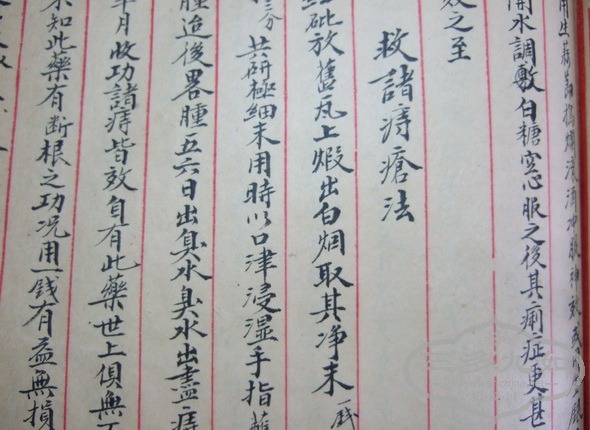 用生蒜
開水調敷白糖空心服之後其痢症更甚
效之至
救諸痔瘡法
紅砒放舊瓦上煅出白烟取其净末一錢
三分共研極細末用時以口津浸湿手指蘸
腫迨後畧腫五六日出臭水臭水出盡痔
半月收功諸痔皆效自有此藥世上俱無
不知此藥有断根之功况用一錢有益無損